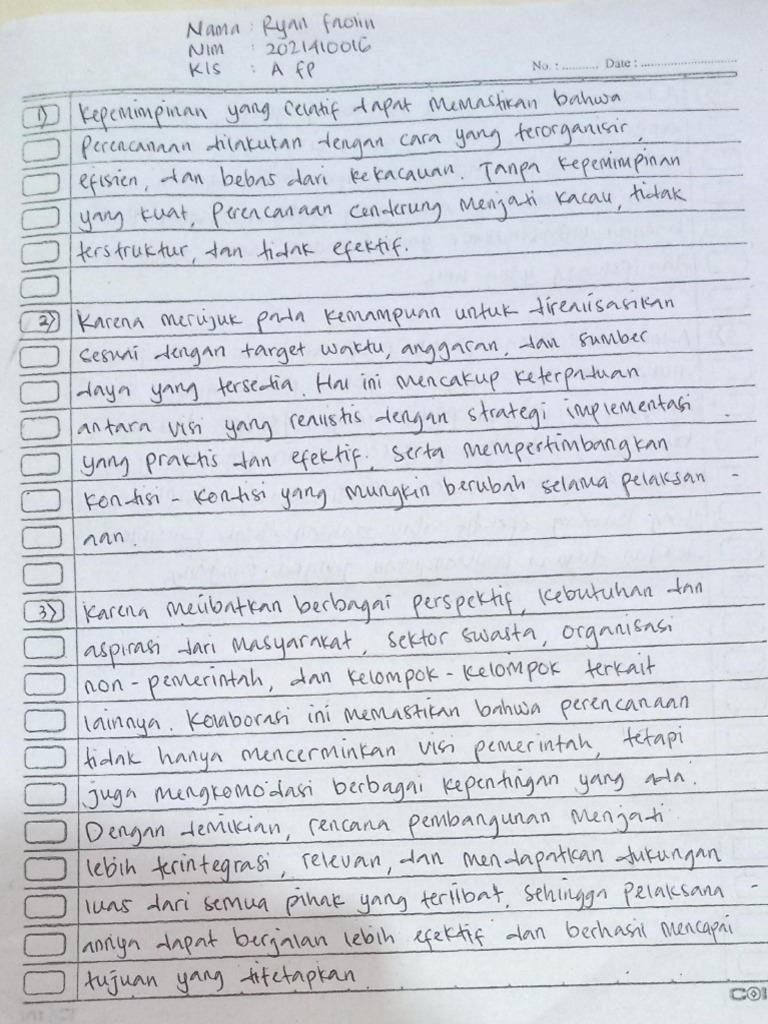 Nama : Ryan Faolin
Nim : 2021410016
Kls : A FP
No. : .......... Date : ..............................
1) Kepemimpinan yang relatif dapat memastikan bahwa
Perencanaan dilakukan dengan cara yang terorganisir,
efisien, dan bebas dari kekacauan. Tanpa kepemimpinan
yang kuat, Perencanaan cenderung menjadi kacau, tidak
terstruktur, dan tidak efektif.
2) Karena merujuk pada kemampuan untuk direalisasikan
sesuai dengan target waktu, anggaran, dan sumber
daya yang tersedia. Hal ini mencakup keterpaduan
antara visi yang realistis dengan strategi implementasi
yang praktis dan efektif, serta mempertimbangkan
kondisi - kondisi yang mungkin berubah selama pelaksan -
aan.
3) Karena melibatkan berbagai perspektif, kebutuhan dan
aspirasi dari masyarakat, sektor swasta, organisasi
non - pemerintah, dan kelompok - kelompok terkait
lainnya. Kolaborasi ini memastikan bahwa perencanaan
tidak hanya mencerminkan visi pemerintah, tetapi
juga mengkomodasi berbagai kepentingan yang ada.
Dengan demikian, rencana pembangunan menjadi
lebih terintegrasi, relevan, dan mendapatkan dukungan
luas dari semua pihak yang terlibat, sehingga pelaksana -
annya dapat berjalan lebih efektif dan berhasil mencapai
tujuan yang ditetapkan